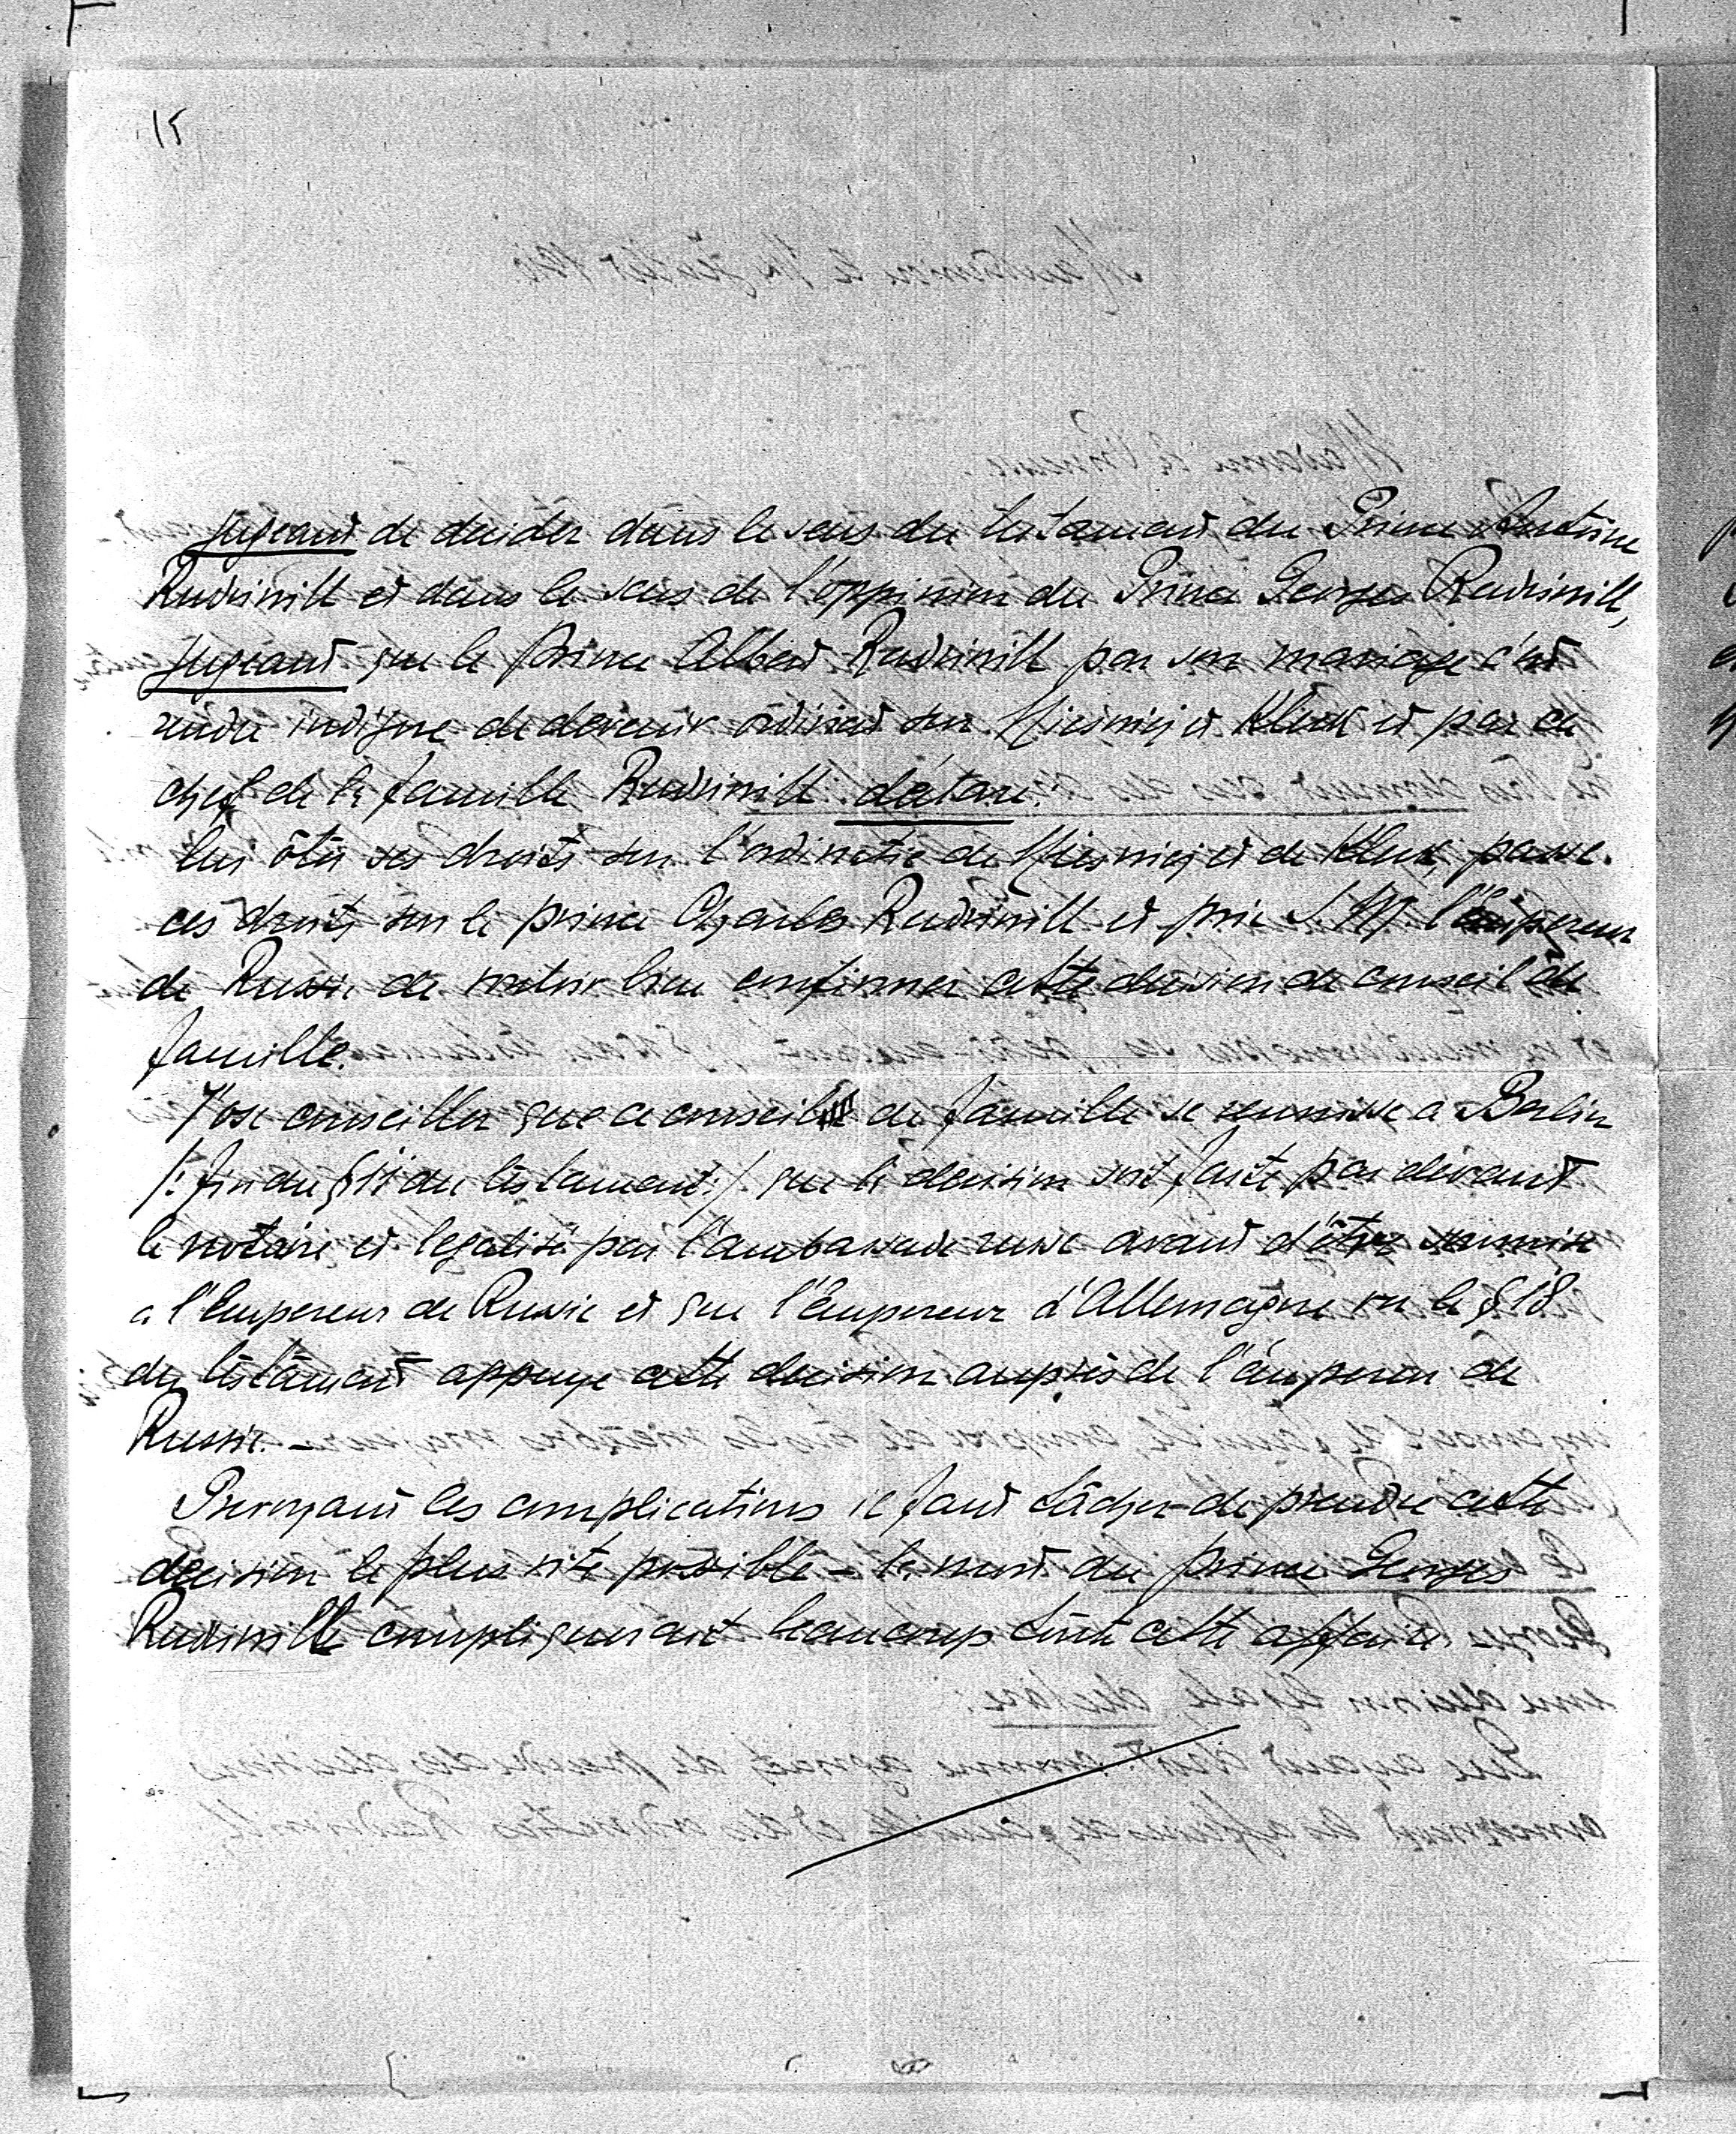 15
jugeant de decider dans le sens du testament du Prince Antoine
Radziwill et dans le sens de l'oppinion du Prince Georges Radziwill,
jugeant que le prince Albert Radziwill par son mariage s'est
rendu indigne de devenir ordinat sur Nieswiej et Kleck et par ce
chef de la famille Radziwill déclare:
lui ôter ses droits sur l'ordinatie de Nieswiej et de Kleck, passe
ces droits sur le prince Charles Radziwill et prie S. M. l'empereur
de Russie de vouloir bien confirmer cette decision de conseil de
famille.
J'ose conseiller que ce conseil de famille se reunisse a Berlin
/: fin du § 11 du testament :/ que la decision soit faite par devant
le notaire et legalisé par l'ambassade russe avant d'être soumise
a l'Empereur de Russie et que l'Empereur d'Allemagne vu le § 18
du testament appuye cette decision auprès de l'empereur de
Russie. —
Prevoyant les complications il faut tâcher de prendre cette
decision le plus vite possible — la mort du prince Georges
Radziwill compliquerait beaucoup toute cette affaire.